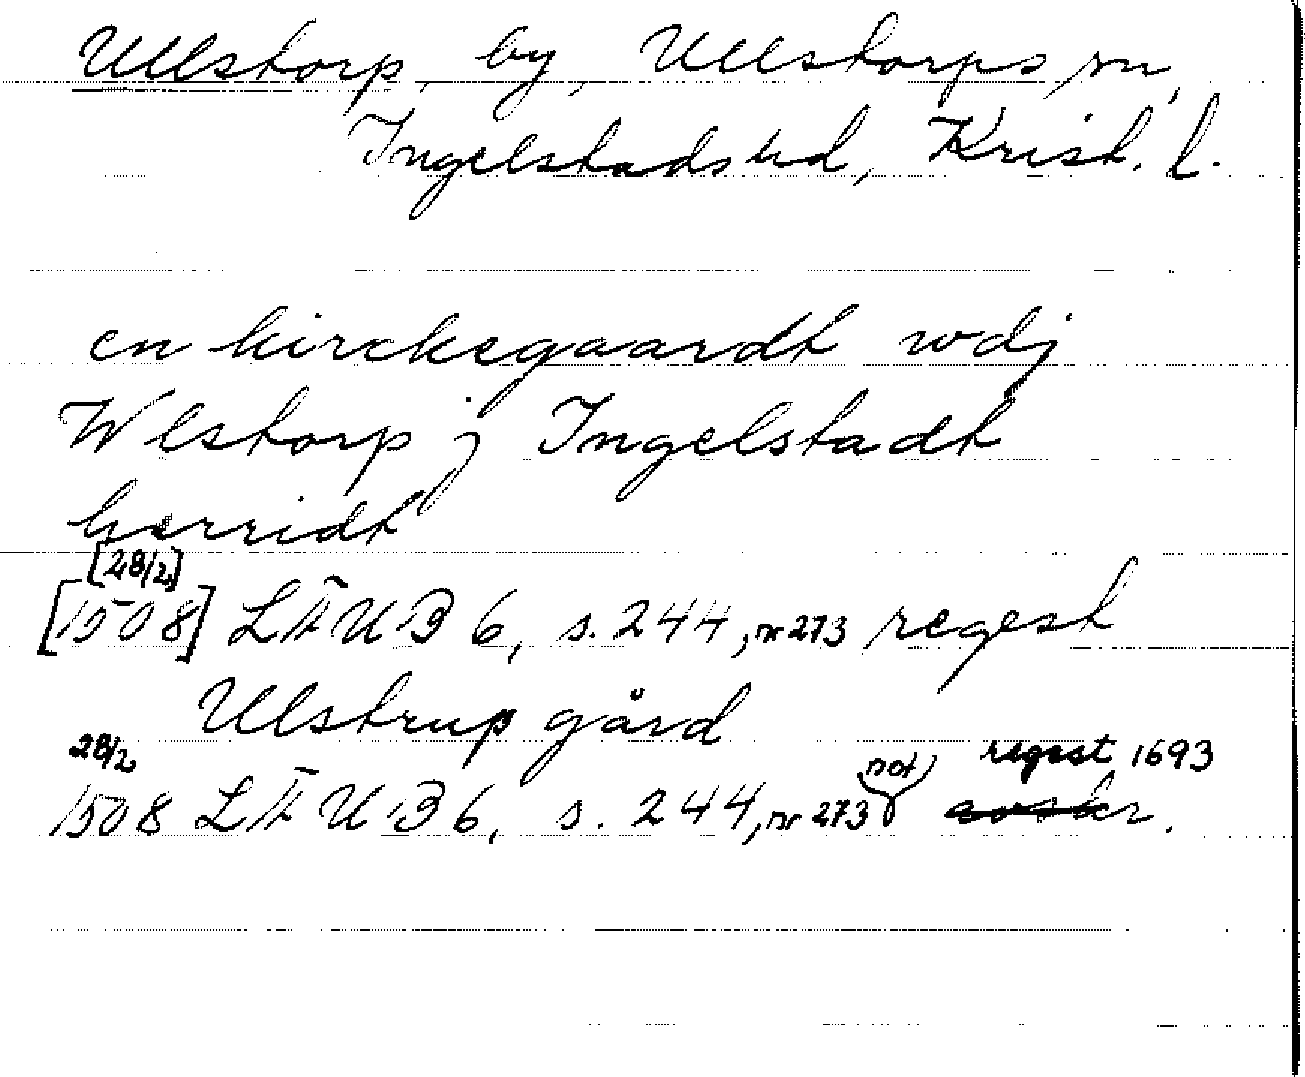 Ullstorp by, Ullstorps sn,
Ingelstads hd, Krist. l.
en kirckegaardt wdj
Wlstorp j Ingelstadt
herridt
[28/2]
[1508] LÄUB 6, s. 244, nr 273 regest
Ulstrup gård
28/2 regest 1693
1508 LÄUB 6, s. 244, nr 273 (not)